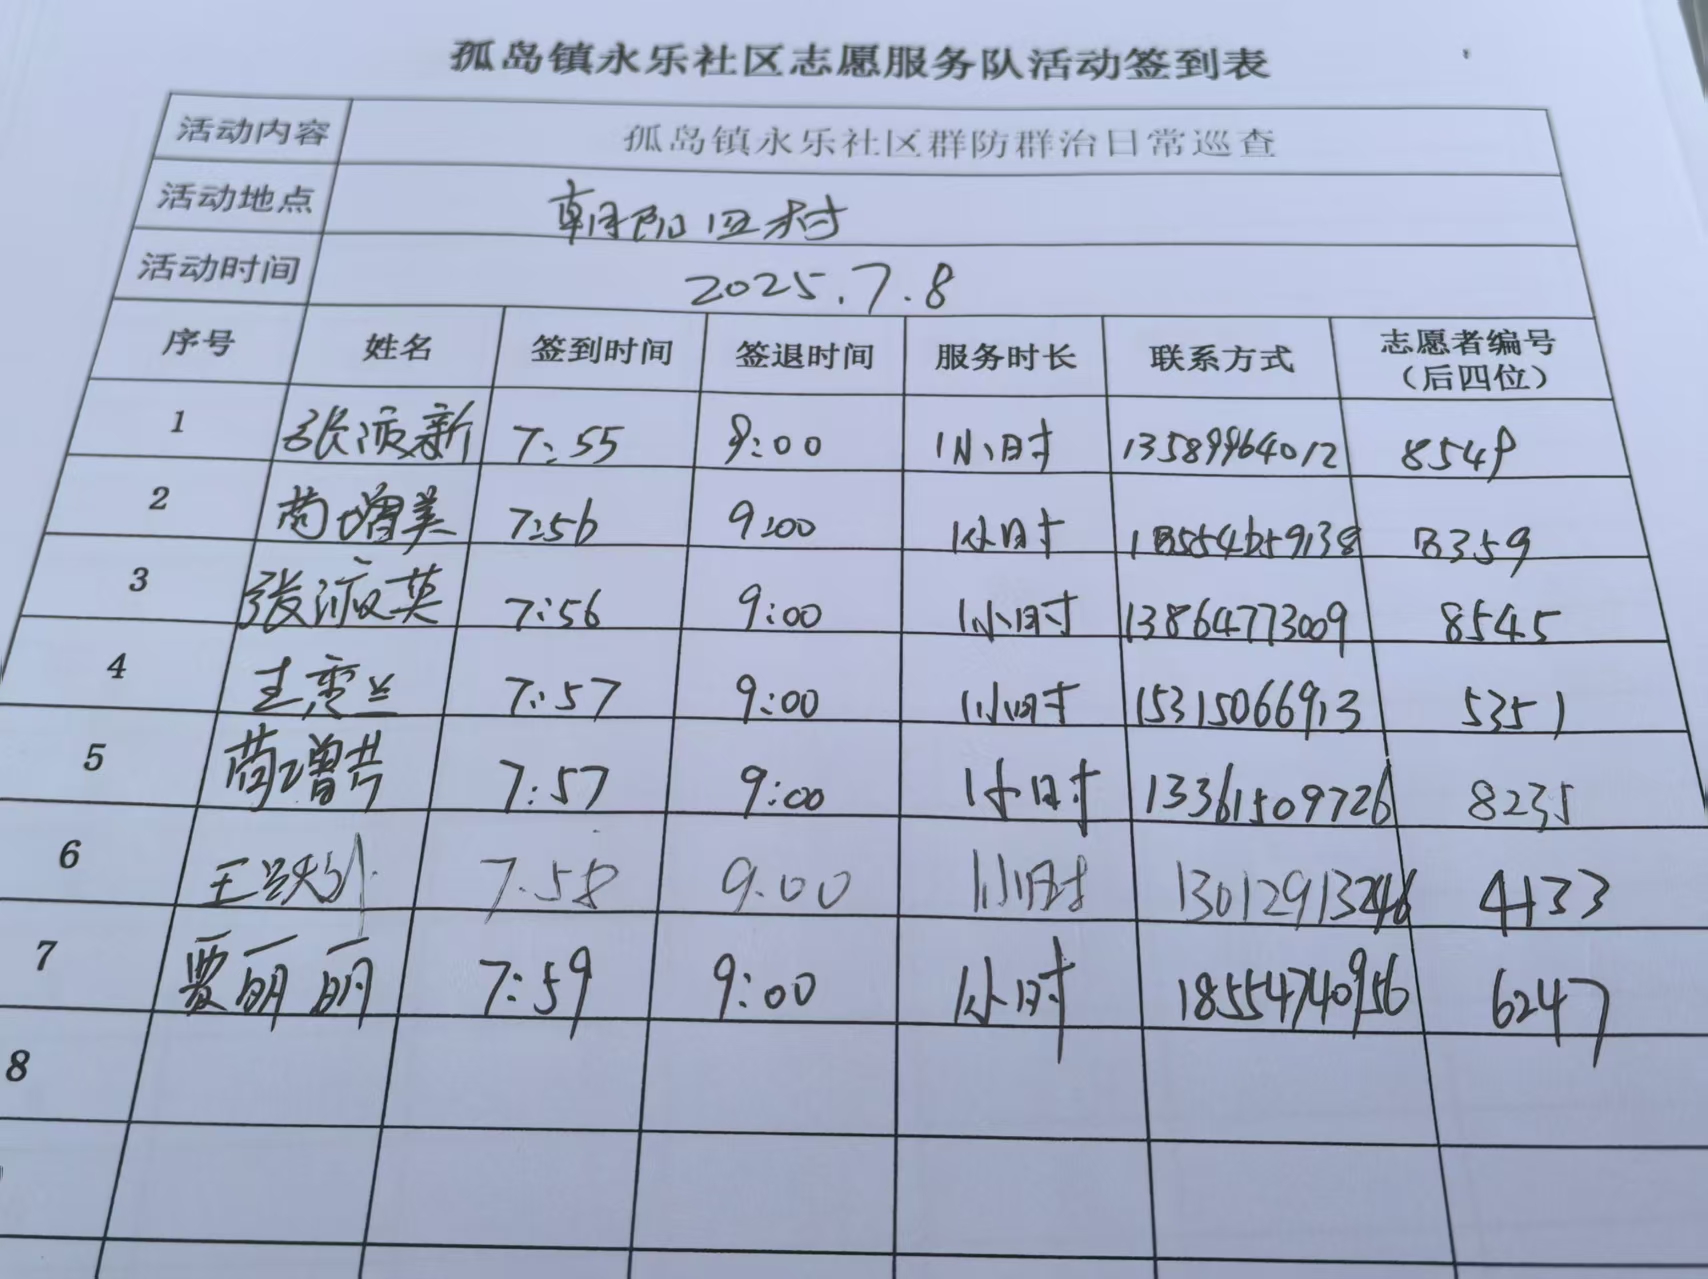 孤岛镇永乐社区志愿服务队活动签到表
活动内容 孤岛镇永乐社区群防群治日常巡查
活动地点 朝阳四村
活动时间 2025.7.8
序号 姓名 签到时间 签退时间 服务时长 联系方式 志愿者编号（后四位）
1 张派新 7:55 9:00 1小时 13589964012 8549
2 苘增美 7:56 9:00 1小时 18554659138 8359
3 张淑英 7:56 9:00 1小时 13864773009 8545
4 7:57 9:00 1小时 15315066913 5351
5 7:57 9:00 1小时 13361509726 8235
6 7.58 9.00 1小时 4133
7 贾丽丽 7:59 9:00 1小时 18554740956 6247
8